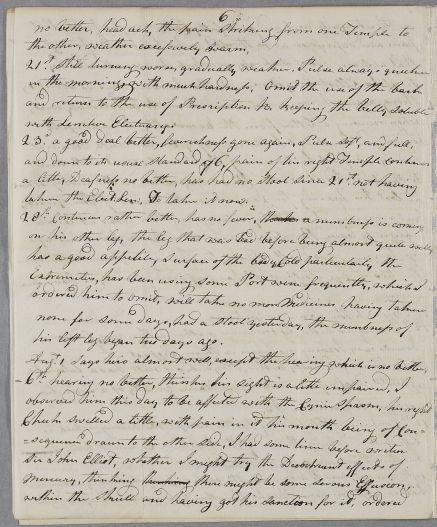 6
no better, head ach, the pain striking from one Temple to
the other, weather excessively warm.
21st Still turning worse, gradually weaker. Pulse always quicker
in the morning, with much hardness; omit the use of the bark
and return to the use of Prescription keeping the belly soluble
with Lenitive Electuary.
23d a good deal better, feverishness gone again, Pulse soft, and full.
and down to its usual Standard 76, pain of his right Temple continues
a little, Deafness no better, has had no Stool since 21st not having
taken the Elect: Len: to take it now.
28th Continues rather better, has no fever, a numbness is coming
on his other leg, the leg that was bad before being almost quite well
has a good appetite, Surface of the body Cold particularly the
Extremities, has been using some Port wine frequently, which I
ordered him to omit, will take no more Medicines having taken
none for some days, had a Stool yesterday, the numbness of
his left leg began two days ago.
Augt 1 Says he is almost well, except the hearing which is no better,
6th hearing no better, thinks his sight is a little impaired, I
observed him this day to be affected with the Cynic Spasm, his right
Cheek swelled a little, with pain in it his mouth being of Con-
-sequence drawn to the other side, I had some time before written
Sir John Elliot, whether I might try the Deobstruent effects of
Mercury, thinking there might be some serous Effusion,
within the Skull and having got his sanction for it, ordered